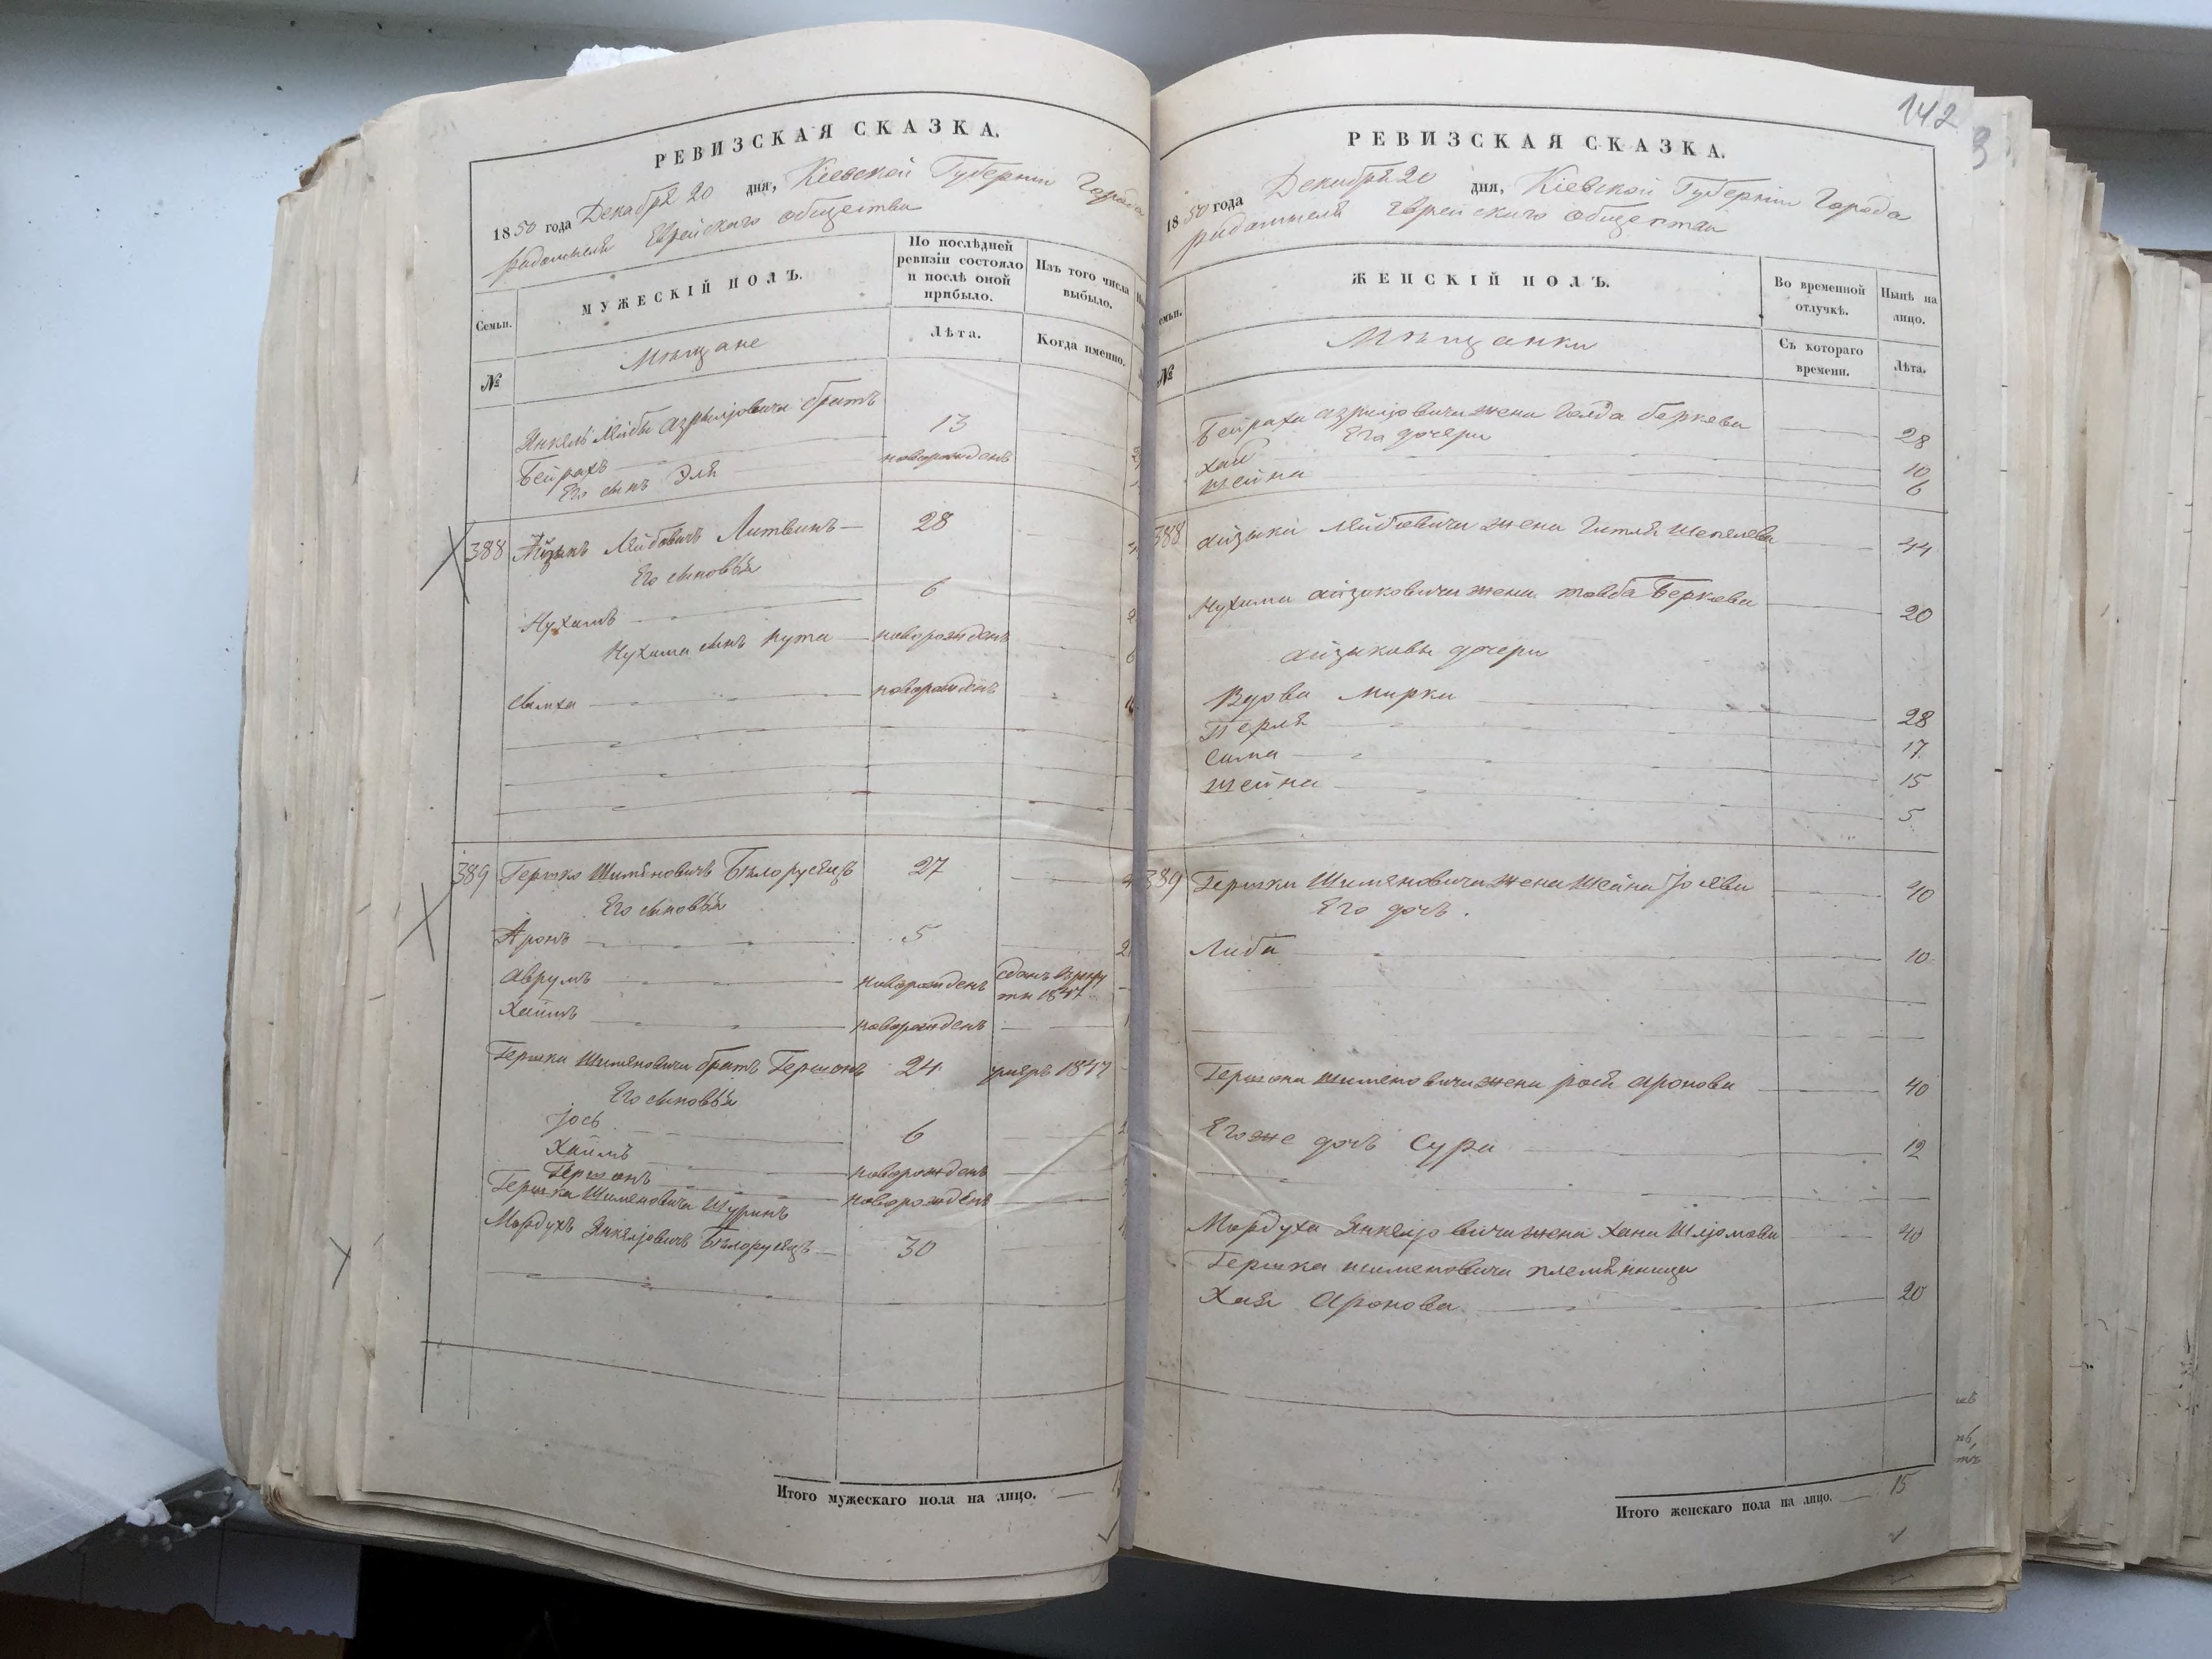 РЕВИЗСКАЯ СКАЗКА.
1850 года Декабря 20 дня, Кіевской Губерніи Города
Радомысля Еврейскаго общества
Семьи.
МУЖЕСКІЙ ПОЛЪ.
По послѣдней ревизіи состояло и послѣ оной прибыло.
Изъ того числа выбыло.
№
Мѣщане
Лѣта.
Когда именно.
Янкель Лейбы Азрилiовича братъ
Бейрахъ 13
Его сынъ Эля новорожденъ
388 Айзыкъ Лейбовичъ Литвинъ 28
Его сыновья
Нухимъ 6
Нухима сынъ Нута новорожденъ
Симха новорожденъ
389 Гершко Шимоновичъ Бѣлорусецъ 27
Его сыновья
Аронъ 5
Аврумъ новорожденъ сданъ в рекру
ты 1847
Хаимъ новорожденъ
Гершки Шимоновича братъ Гершонъ 24 умеръ 1847
Его сыновья
Іось 6
Хаимъ новорожденъ
Гершонъ новорожденъ
Гершка Шимоновича Шуринъ
Мордухъ Янкелiовичъ Бѣлорусецъ 30
Итого мужескаго пола на лицо.
142
РЕВИЗСКАЯ СКАЗКА.
1850 года Декабря 20 дня, Кіевской Губерніи Города
Радомысля Еврейскаго общества
Семьи.
ЖЕНСКІЙ ПОЛЪ.
Во временной отлучкѣ.
Нынѣ на лицо.
№
Мѣщанки
Съ котораго времени.
Лѣта.
Бейраха Азрилiовича жена Голда Беркова 28
Его дочери
Хая 10
Шейна 6
388 Айзыка Лейбовича жена Гитля Шепелева 44
Нухима Айзиковича жена товба Беркова 20
Айзыковы дочери
Вдова Мирка 28
Перля 17
Сима 15
Шейна 5
389 Гершки Шимоновича жена Шейна Іосева 40
Его дочь.
Либа 10
Гершона Шимоновича жена рося Аронова 40
Его же дочь Сура 12
Мордуха Янкелiовича жена Хана Шлiомова 40
Гершка шимоновича племянница
Хая Аронова 20
Итого женскаго пола на лицо. 15